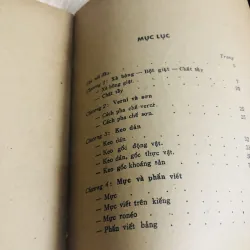 MỤC LỤC
Trang
Lời nói đầu
Chương 1: Xà bông — Bột giặt — Chất tẩy
— Xà bông giặt
— Chất tẩy
Chương 2: Verni và sơn
— Cách pha chế verni
— Cách pha chế sơn
Chương 3: Keo dán
— Keo dán
— Keo gốc động vật
— Keo dán, gốc thực vật
— Keo gốc khoáng sản
Chương 4: Mực và phấn viết
— Mực
— Mực viết trên kiếng
— Mực ronéo
— Phấn viết bảng